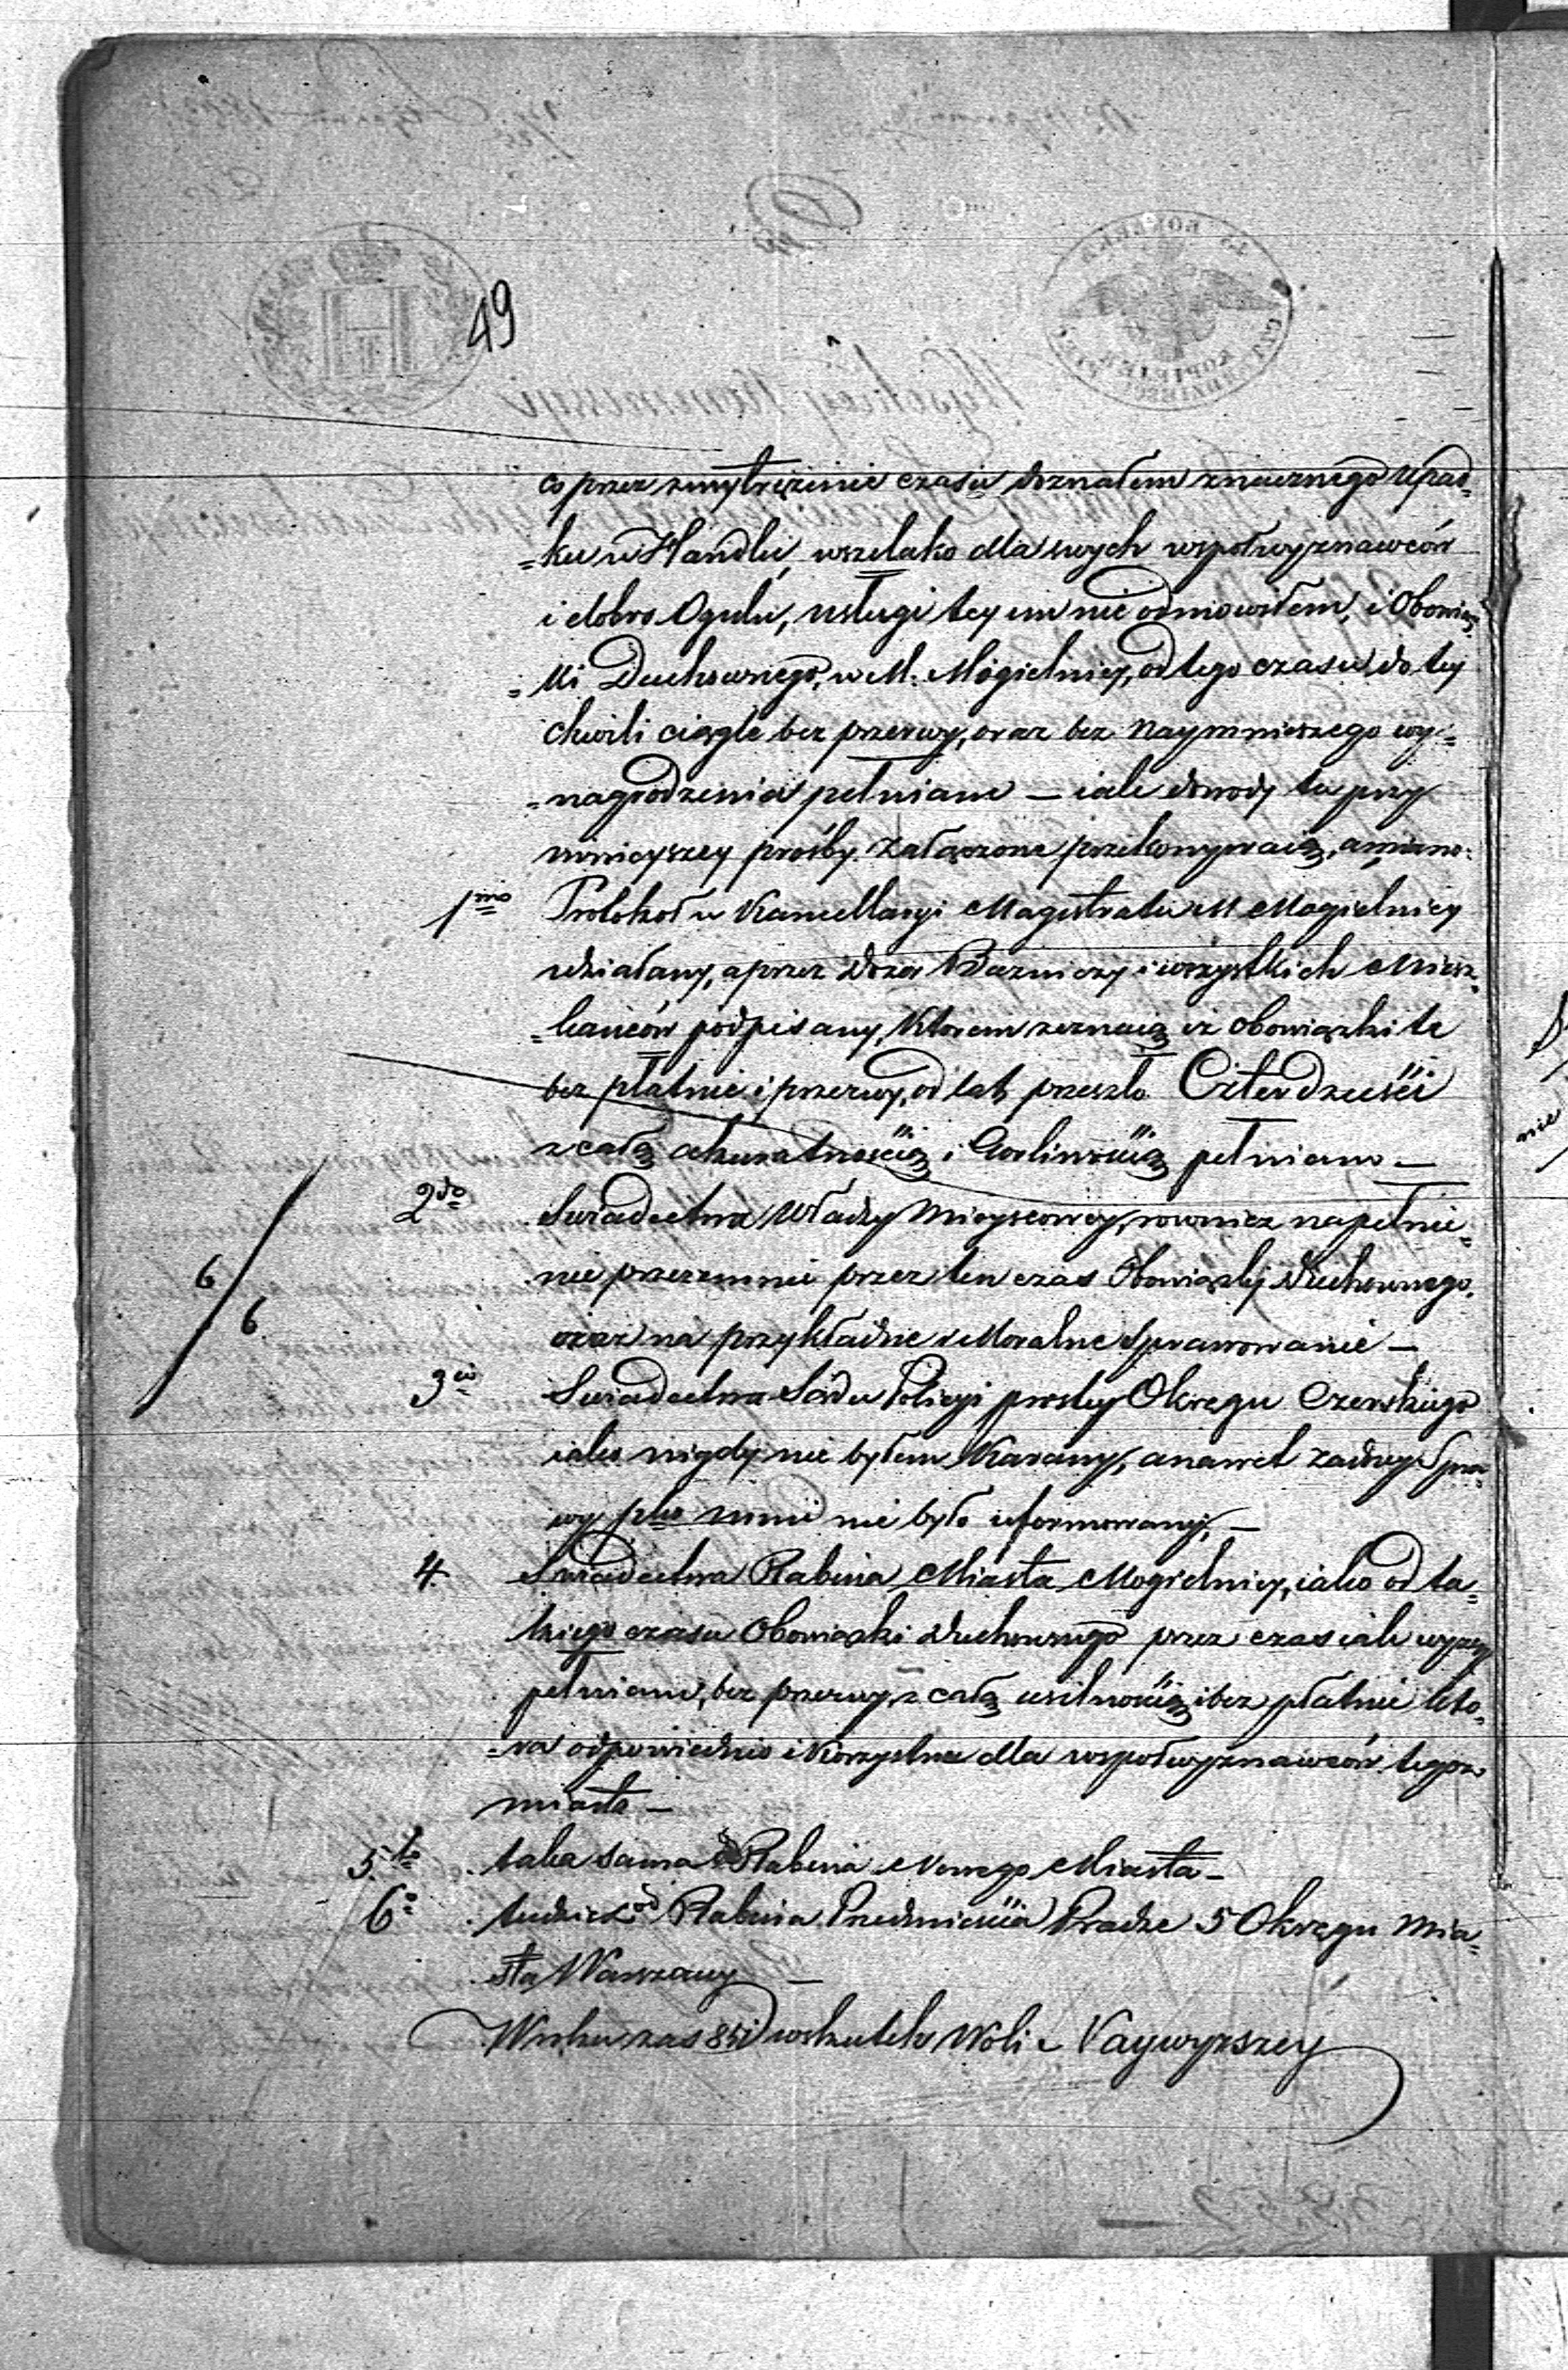 49
co przez zmytrężenie czasu doznałem znacznego upad-
=ku w Handlu, wszelako dla swych wspołwyznawców
i dobro Ogułu, usługi tey im nie odmowiłem, i Obowiąz=
=ki Duchownego, w M. Mogielnicy, od tego czasu do tey
chwili ciągle bez przerwy, oraz bez naymnieszego wy=
=nagrodzenia pełniam — iak dowody tu przy
ninieyszey prośby załączone przekonywaią, a miano:
1mo Protokoł w Kancellaryi Magistratu M Mogielnicy
zdziałany, a przez Dozór Bożniczy i wszystkich Miesz=
=kańców podpisany, którem zeznaią iż obowiązki te
bez płatnie i przerwy, od lat przeszło Czterdzieści
z całą akuratnością i Gorliwością pełniam —
2do Swiadectwa Władzy Mieyscowey, rownież na pełnie=
nie przezemnie przez ten czas Obowiązky Duchownego,
oraz na przykładne i Moralne Sprawowanie —
6/6
3cio Swiadectwa Sądu Policyi prostey Okręgu Czerskiego
iako nigdy nie byłem Karany, a nawet żadney Spra=
wy pko mnie nie było uformowaney, —
4. Swiadectwa Rabina Miasta Mogielnicy, iako od ta=
kiego czasu Obowiązki Duchownego przez czas iak wyzey
pełniam, bez przerwy, z całą usilnością i bez płatnie kto=
=ra odpowiednio i Korzystna dla wspołwyznawców tegoz
miasta —
5.to taka sama Rabina Nowego Miasta —
6o tudzież od Rabina Przedmieścia Pradze 5 Okręgu Mia=
sta Warszawy —
W roku zas 851 wskutek Woli Naywyzszey